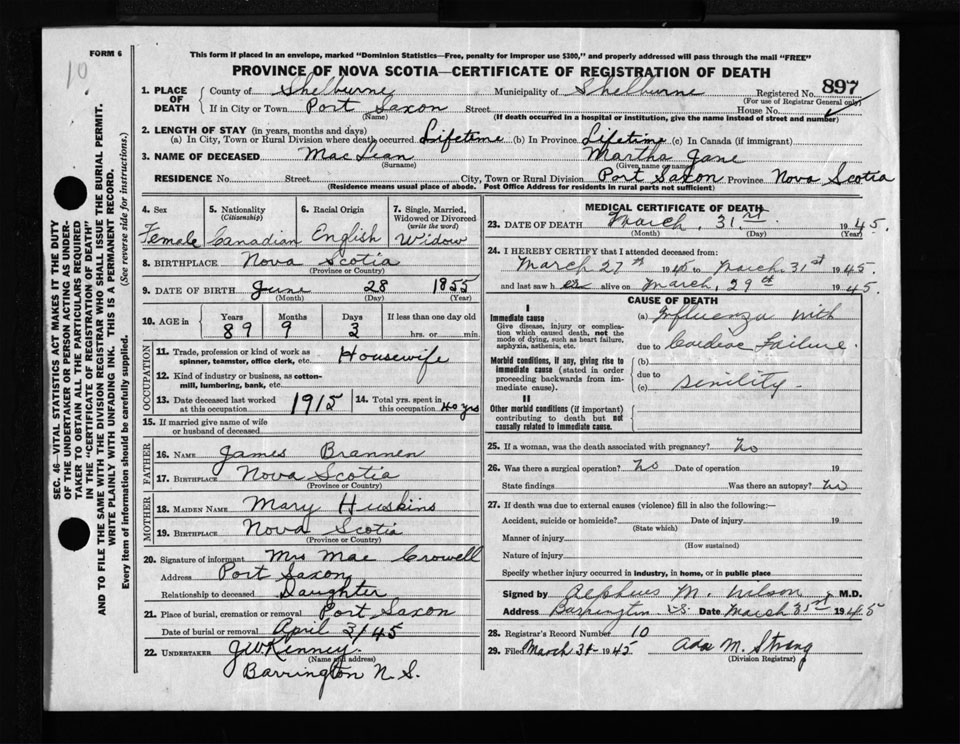 FORM 6
10
This form if placed in an envelope, marked "Dominion Statistics—Free, penalty for improper use $300," and properly addressed will pass through the mail "FREE"
PROVINCE OF NOVA SCOTIA—CERTIFICATE OF REGISTRATION OF DEATH
897
1. PLACE OF DEATH County of Shelburne Municipality of Shelburne Registered No.
(For use of Registrar General only)
If in City or Town Port Saxon Street House No.
(Name) (If death occurred in a hospital or institution, give the name instead of street and number)
2. LENGTH OF STAY (in years, months and days)
(a) In City, Town or Rural Division where death occurred Lifetime (b) In Province Lifetime (c) In Canada (if immigrant)
3. NAME OF DECEASED MacLean Martha Jane
(Surname) (Given name or names)
RESIDENCE No. Street City, Town or Rural Division Port Saxon Province Nova Scotia
(Residence means usual place of abode. Post Office Address for residents in rural parts not sufficient)
4. Sex 5. Nationality (Citizenship) 6. Racial Origin 7. Single, Married, Widowed or Divorced (write the word)
Female Canadian English Widow
8. BIRTHPLACE Nova Scotia
(Province or Country)
9. DATE OF BIRTH June 28 1855
(Month) (Day) (Year)
10. AGE in Years Months Days If less than one day old
89 9 3 hrs. or min.
OCCUPATION
11. Trade, profession or kind of work as spinner, teamster, office clerk, etc. Housewife
12. Kind of industry or business, as cotton-mill, lumbering, bank, etc.
13. Date deceased last worked at this occupation 1915 14. Total yrs. spent in this occupation 40 yrs
15. If married give name of wife or husband of deceased
FATHER
16. NAME James Brannen
17. BIRTHPLACE Nova Scotia
(Province or Country)
MOTHER
18. MAIDEN NAME Mary Huskins
19. BIRTHPLACE Nova Scotia
(Province or Country)
20. Signature of informant Mrs Mae Crowell
Address Port Saxon
Relationship to deceased Daughter
21. Place of burial, cremation or removal Port Saxon
Date of burial or removal April 3/45
22. UNDERTAKER J W Kenney
(Name and address)
Barrington N.S.
MEDICAL CERTIFICATE OF DEATH
23. DATE OF DEATH March, 31 1945.
(Month) (Day) (Year)
24. I HEREBY CERTIFY that I attended deceased from:
March 27th 1945 to March 31st 1945.
and last saw her alive on March, 29th 1945.
CAUSE OF DEATH
I
Immediate cause (a) Influenza with
Give disease, injury or complication which caused death, not the mode of dying, such as heart failure, asphyxia, asthenia, etc.
due to Cardiac Failure.
Morbid conditions, if any, giving rise to immediate cause (stated in order proceeding backwards from immediate cause).
(b)
due to
(c) senility.
II
Other morbid conditions (if important) contributing to death but not causally related to immediate cause.
25. If a woman, was the death associated with pregnancy? no
26. Was there a surgical operation? no Date of operation 19
State findings Was there an autopsy? no
27. If death was due to external causes (violence) fill in also the following:—
Accident, suicide or homicide? Date of injury 19
(State which)
Manner of injury
(How sustained)
Nature of injury
Specify whether injury occurred in industry, in home, or in public place
Signed by Alpheus M. Wilson M.D.
Address Barrington N.S. Date March 31st 1945
28. Registrar's Record Number 10
29. Filed March 31 1945 Ada M. Strong
(Division Registrar)
SEC. 46—VITAL STATISTICS ACT MAKES IT THE DUTY
OF THE UNDERTAKER OR PERSON ACTING AS UNDER-
TAKER TO OBTAIN ALL THE PARTICULARS REQUIRED
IN THE "CERTIFICATE OF REGISTRATION OF DEATH"
AND TO FILE THE SAME WITH THE DIVISION REGISTRAR WHO SHALL ISSUE THE BURIAL PERMIT.
WRITE PLAINLY WITH UNFADING INK. THIS IS A PERMANENT RECORD.
Every item of information should be carefully supplied. (See reverse side for instructions.)